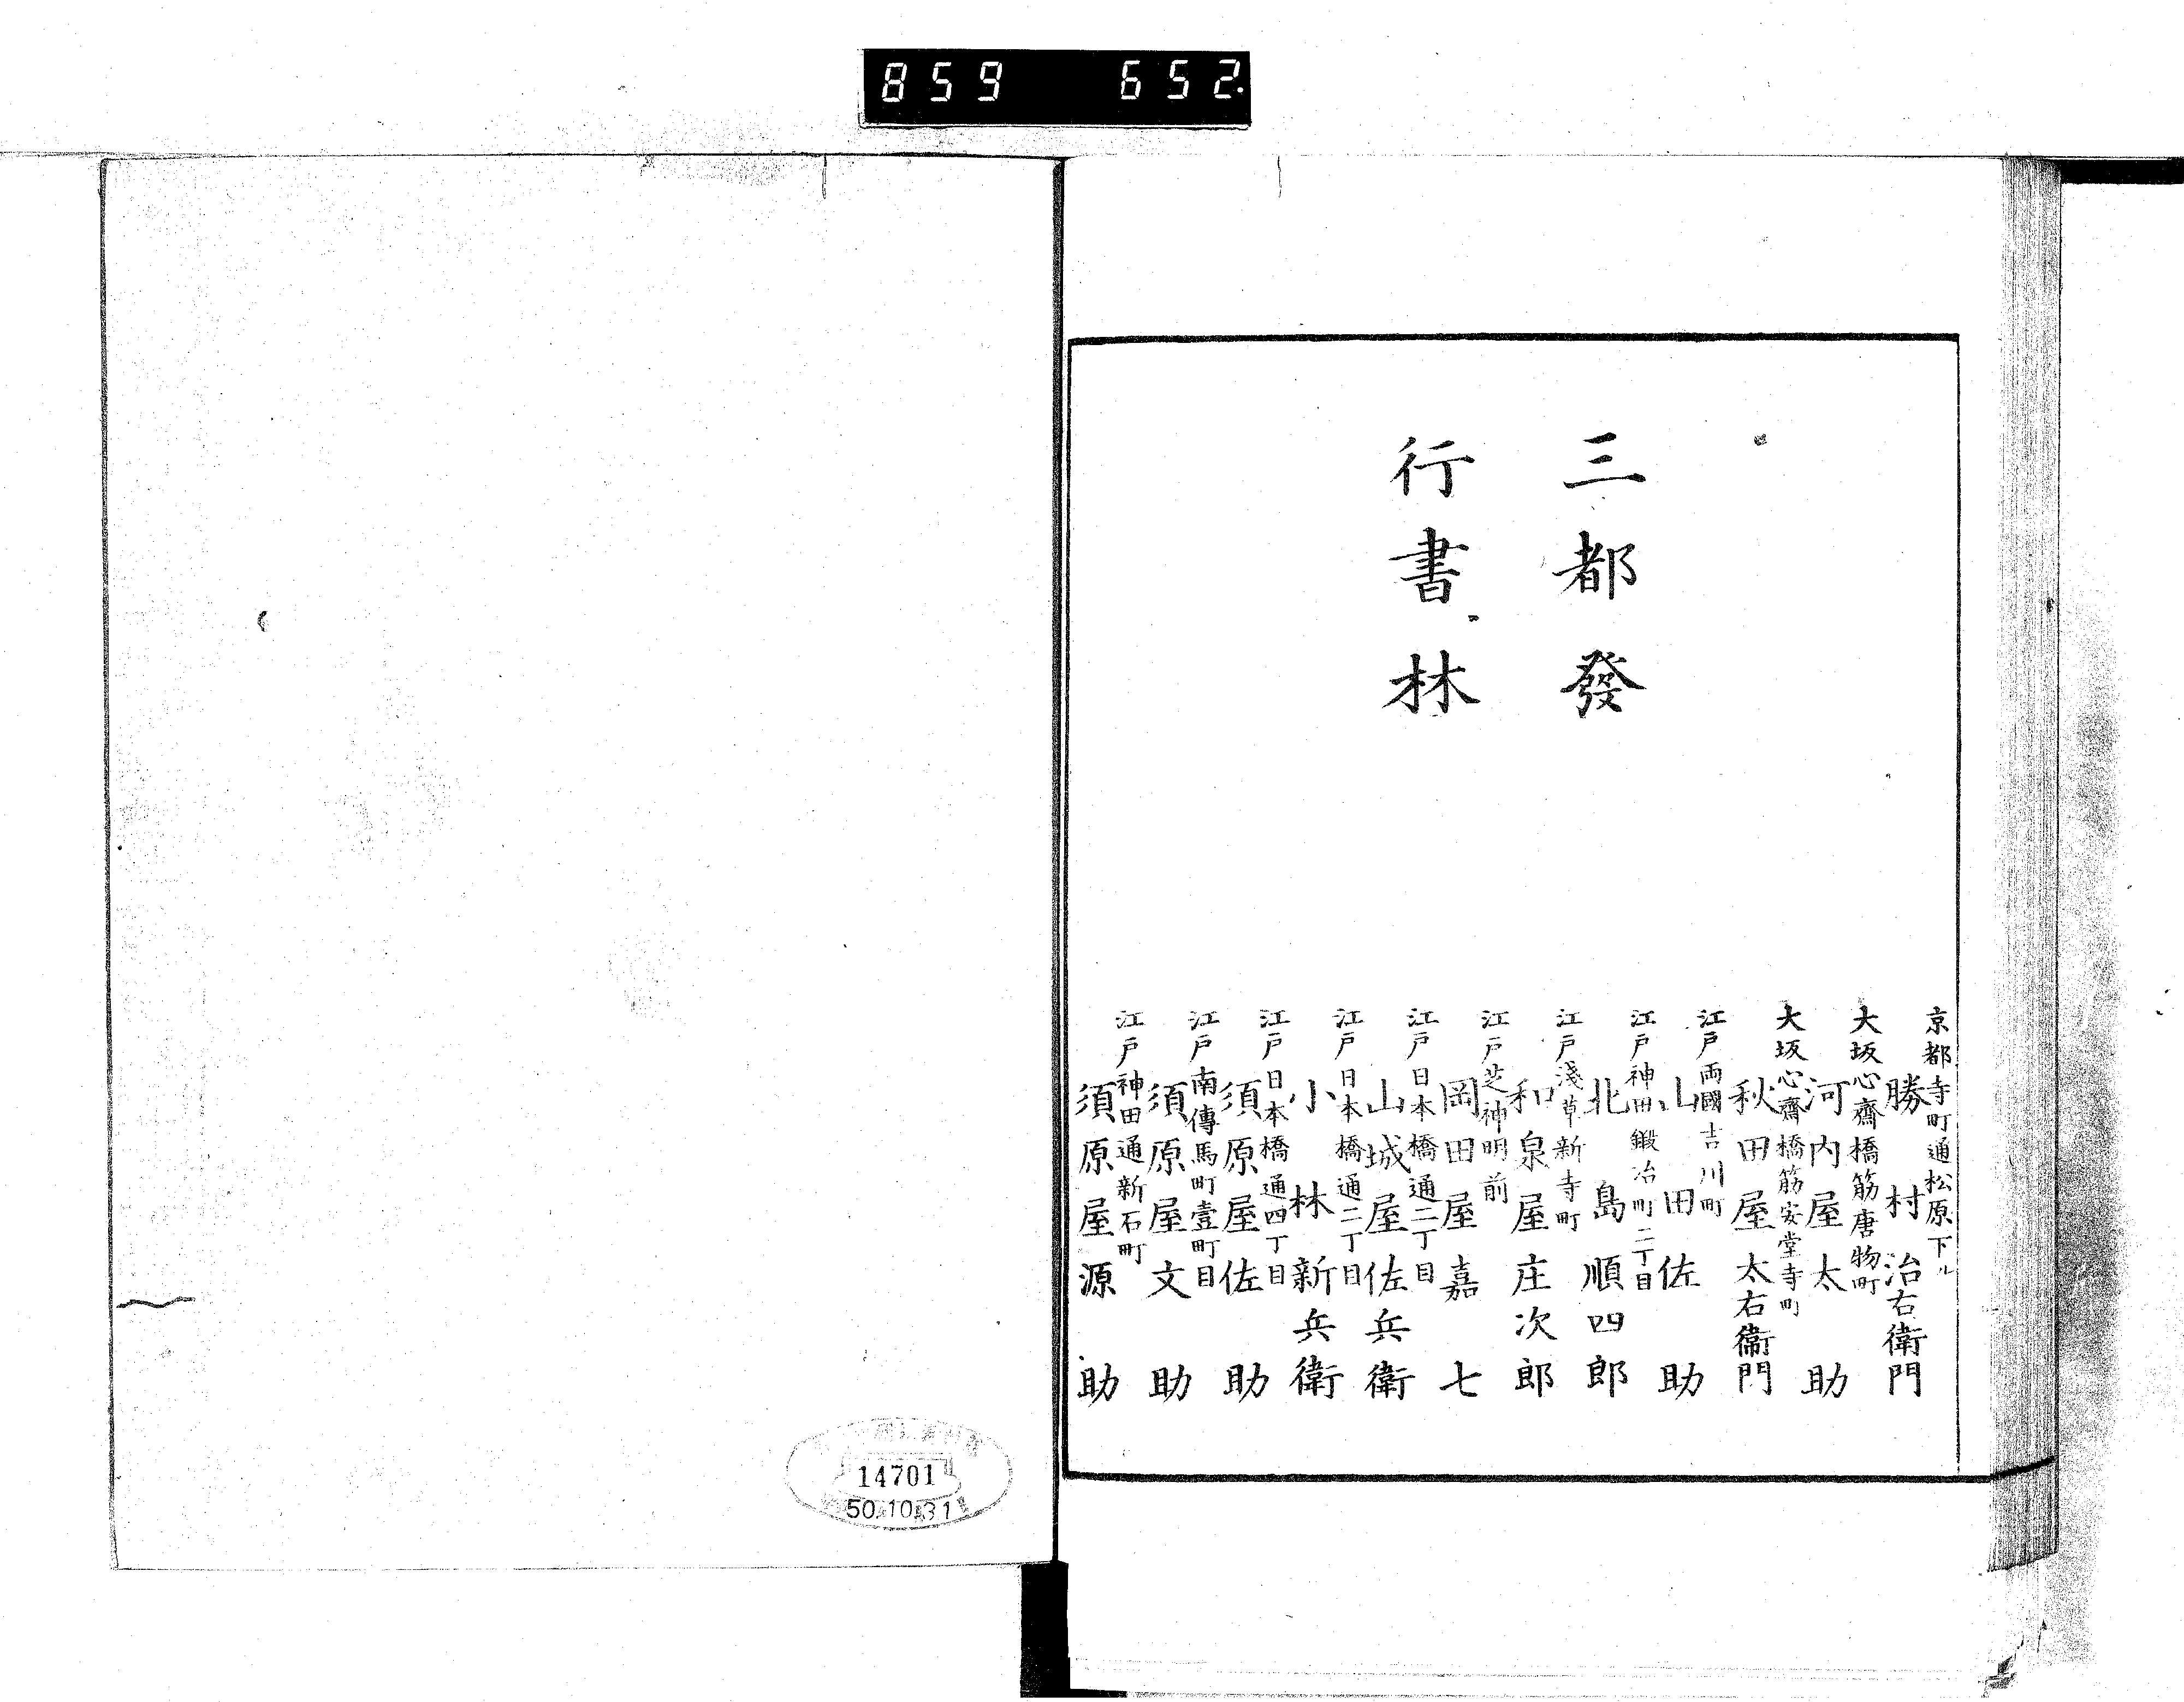 859 652
三都發
行書林
京都寺町通松原下ル
勝村治右衛門
大坂心齋橋筋唐物町
河内屋太助
大坂心齋橋筋安堂寺町
秋田屋太右衞門
江戸両國吉川町
山田佐助
江戸神田鍛冶町二丁目
北島順四郎
江戸淺草新寺町
和泉屋庄次郎
江戸芝神明前
岡田屋嘉七
江戸日本橋通二丁目
山城屋佐兵衛
江戸日本橋通二丁目
小林新兵衛
江戸日本橋通四丁目
須原屋佐助
江戸南傳馬町壹町目
須原屋文助
江戸神田通新石町
須原屋源助
14701
50.10.31